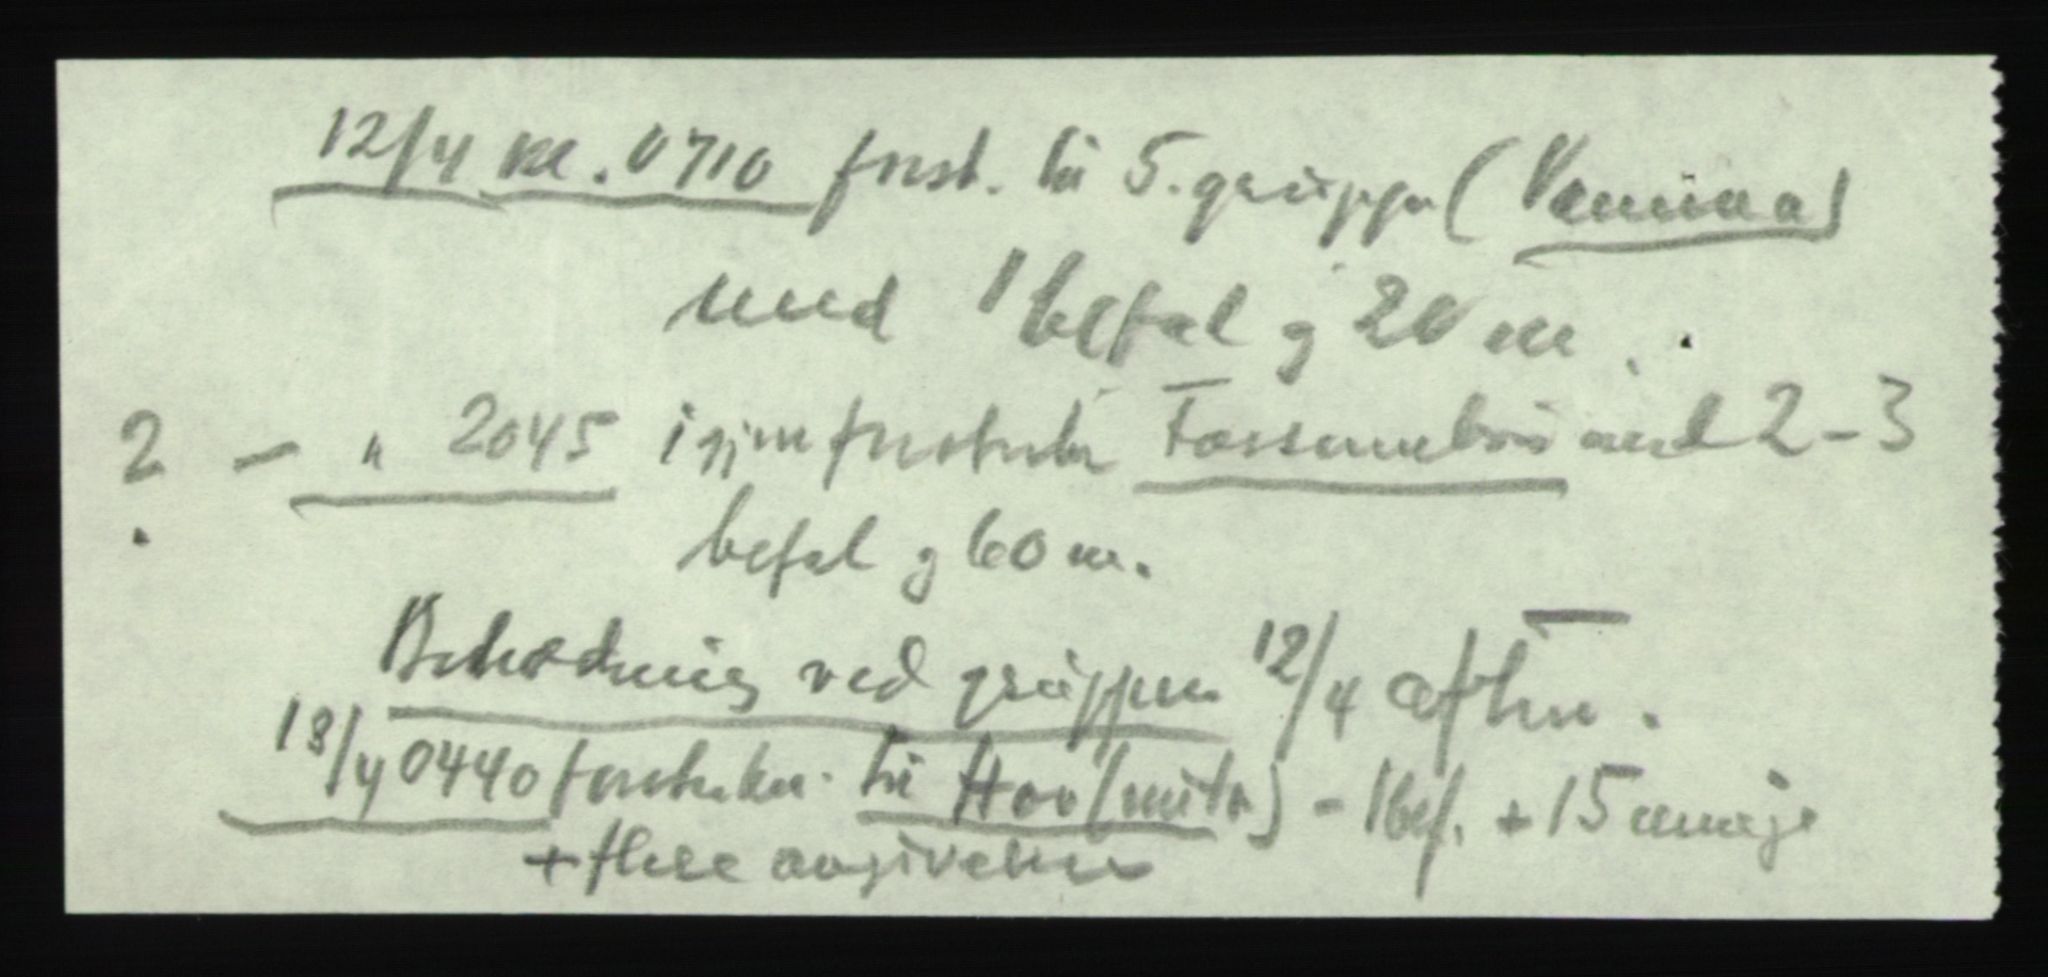 12/4 kl. 0710 forst. til 5. gruppe (
med 1 befal og 20 m.
? - " 2045 igjen forsterket Fossumbru med 2-3
befal og 60 m.
Beredning ved gruppen 12/4 aften.
13/4 0440 forsterkn. til Hov (mitr) - 1 bef. + 15 menige
+ flere angivelser